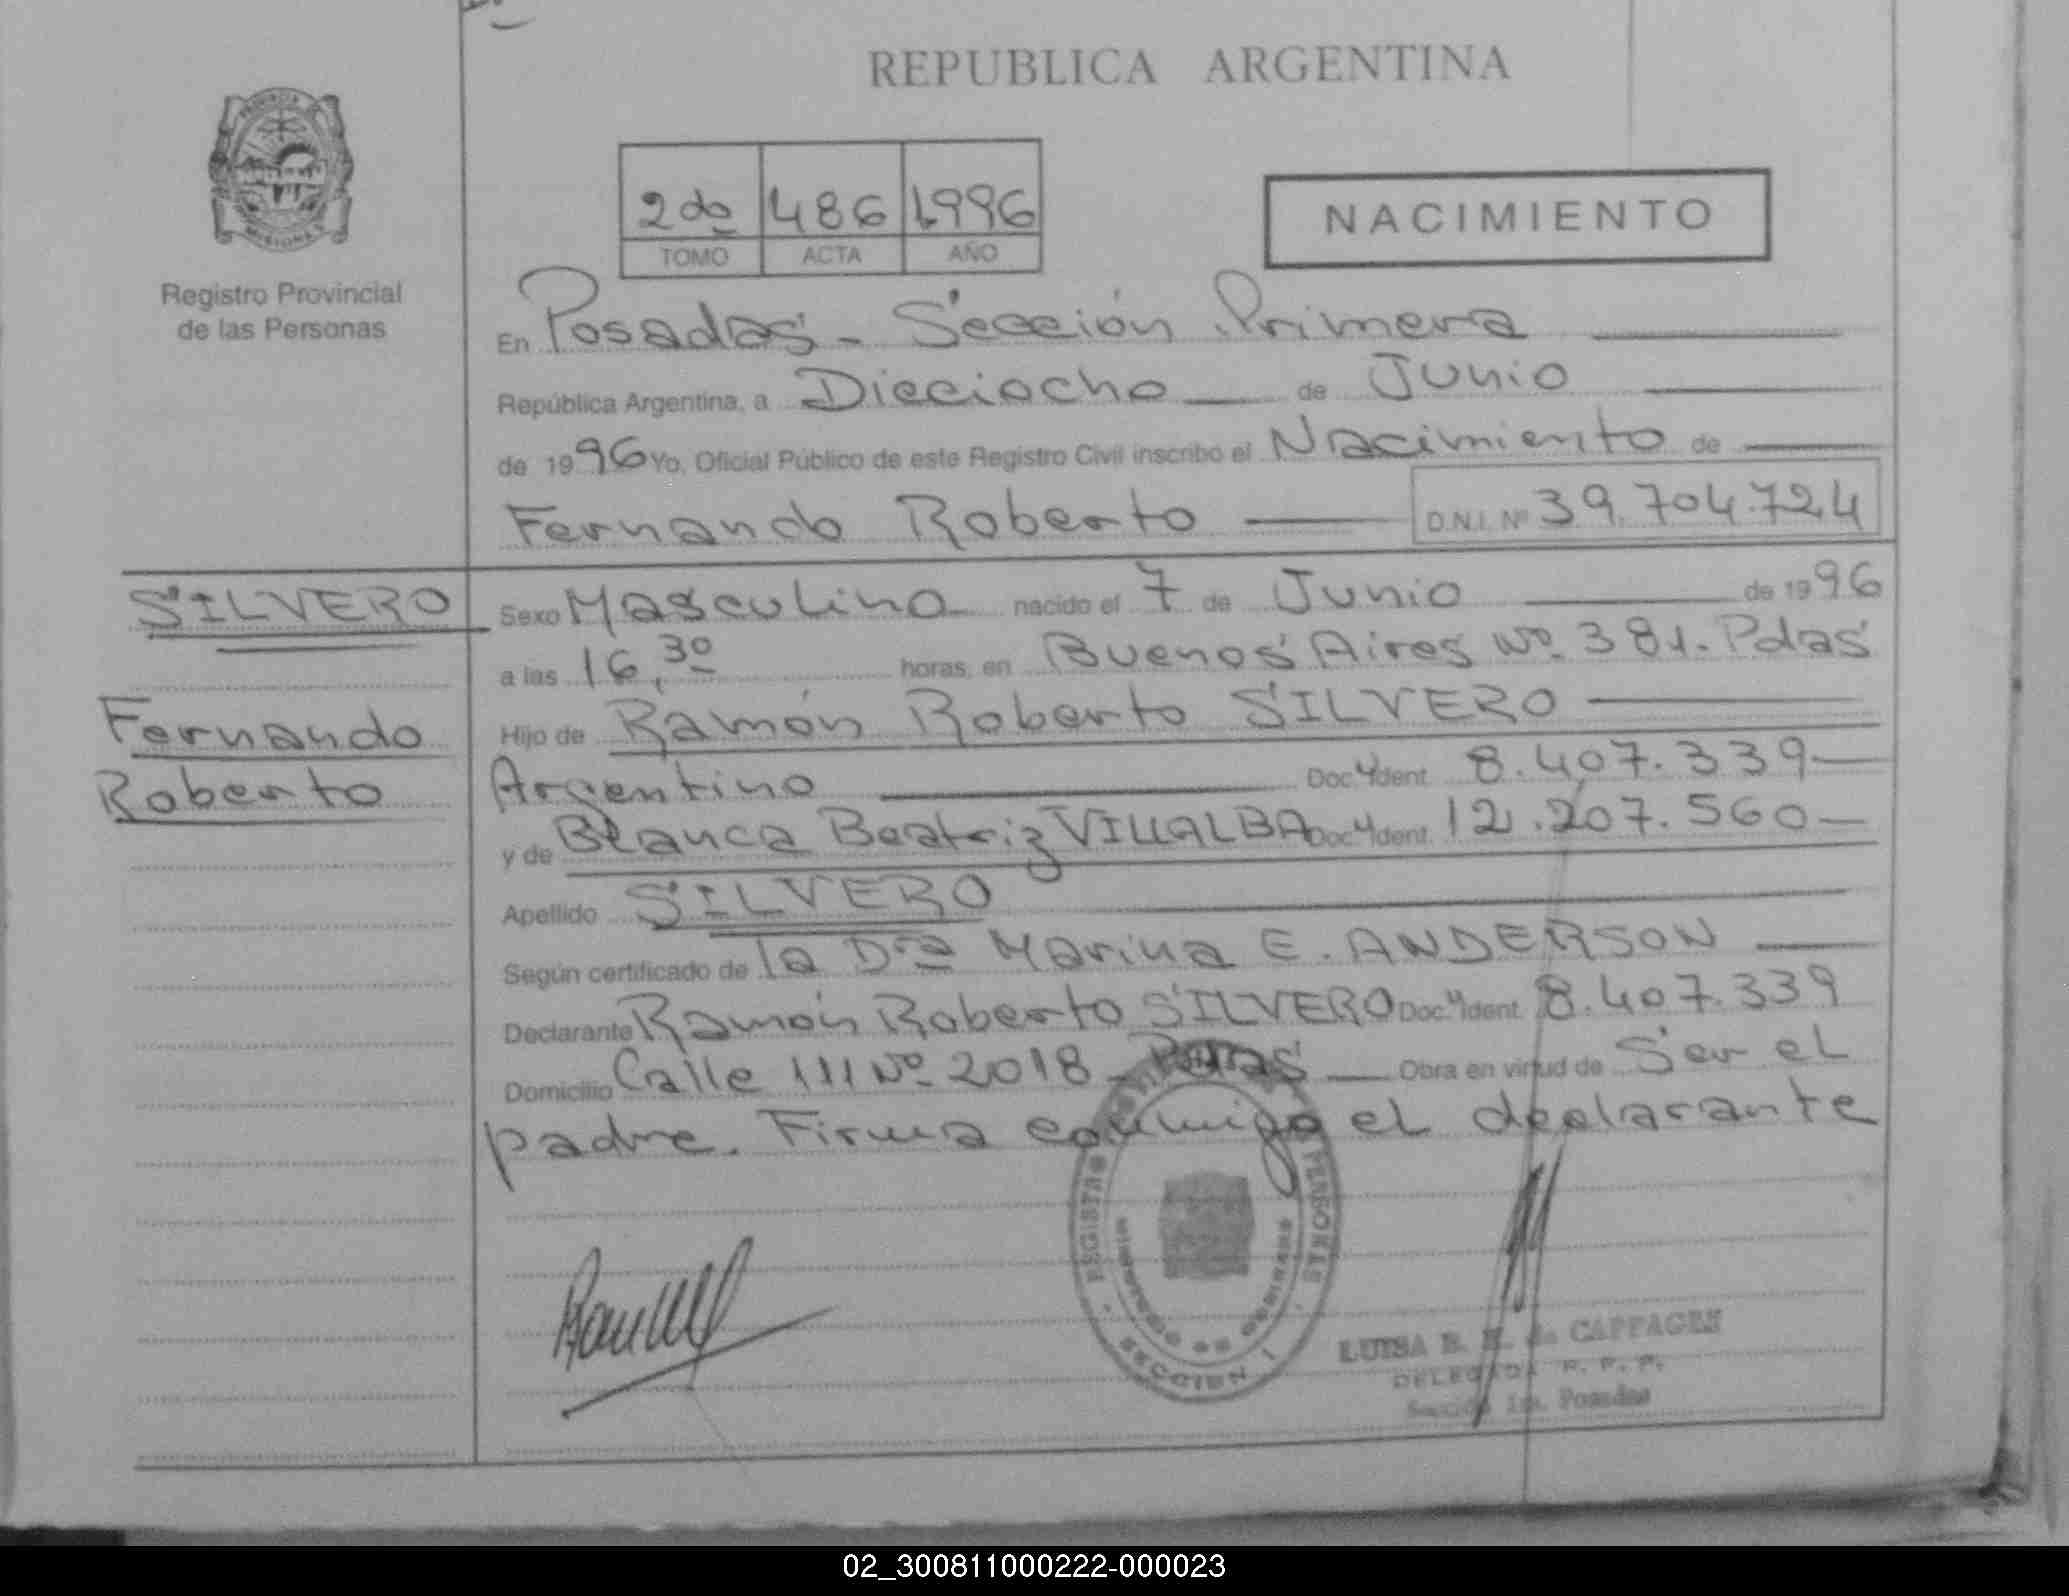 REPUBLICA ARGENTINA
PROVINCIA
MISIONES
Registro Provincial
de las Personas
2do 486 1996
TOMO ACTA AÑO
NACIMIENTO
En Posadas - Sección Primera
República Argentina, a Dieciocho de Junio
de 1996 Yo, Oficial Público de este Registro Civil inscribo el Nacimiento de
Fernando Roberto D.N.I. Nº 39.704.724
SILVERO
Fernando
Roberto
Sexo Masculino nacido el 7 de Junio de 1996
a las 16,30 horas, en Buenos Aires Nº 381. Pdas
Hijo de Ramón Roberto SILVERO
Argentino Doc. Ident. 8.407.339
y de Blanca Beatriz VILLALBA Doc. Ident. 12.207.560
Apellido SILVERO
Según certificado de la Dra Marina E. ANDERSON
Declarante Ramón Roberto SILVERO Doc. Ident. 8.407.339
Domicilio Calle 111 Nº 2018 - Pdas Obra en virtud de Ser el
padre. Firma conmigo el declarante
REGISTRO PERSONAS
SECCION 1
LUISA B. de CAPPAGES
DELEGADA R. P. P.
Sección 1ra. Posadas
02_300811000222-000023